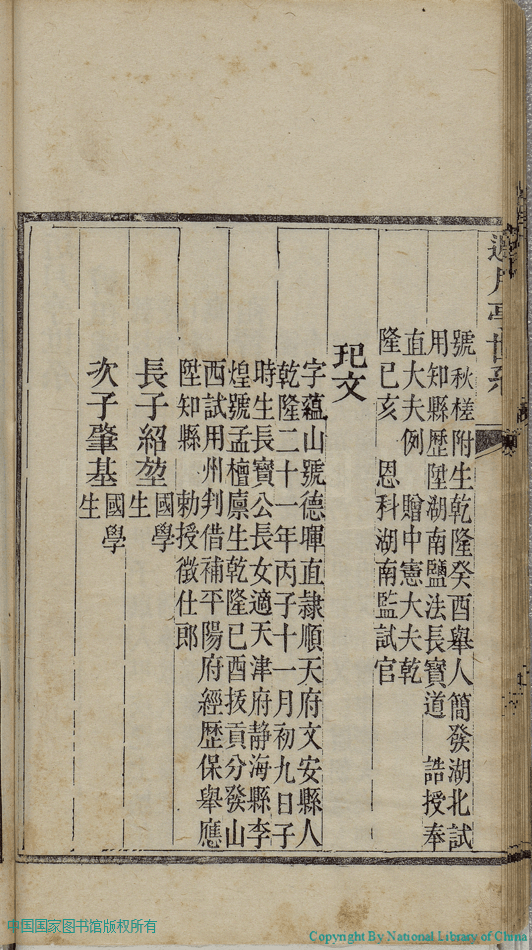 號秋槎附生乾隆癸酉舉人簡發湖北試
用知縣歷陞湖南鹽法長寶道 誥授奉
直大夫例 贈中憲大夫乾
隆己亥 恩科湖南監試官
玘文
字蘊山號德暉直隸順天府文安縣人
乾隆二十一年丙子十一月初九日子
時生長寶公長女適天津府靜海縣李
煌號孟檀廩生乾隆己酉拔貢分發山
西試用州判借補平陽府經歷保舉應
陞知縣 勅授徵仕郎
長子紹堃 國學生
次子肇基 國學生
中国国家图书馆版权所有
Copyright By National Library of China